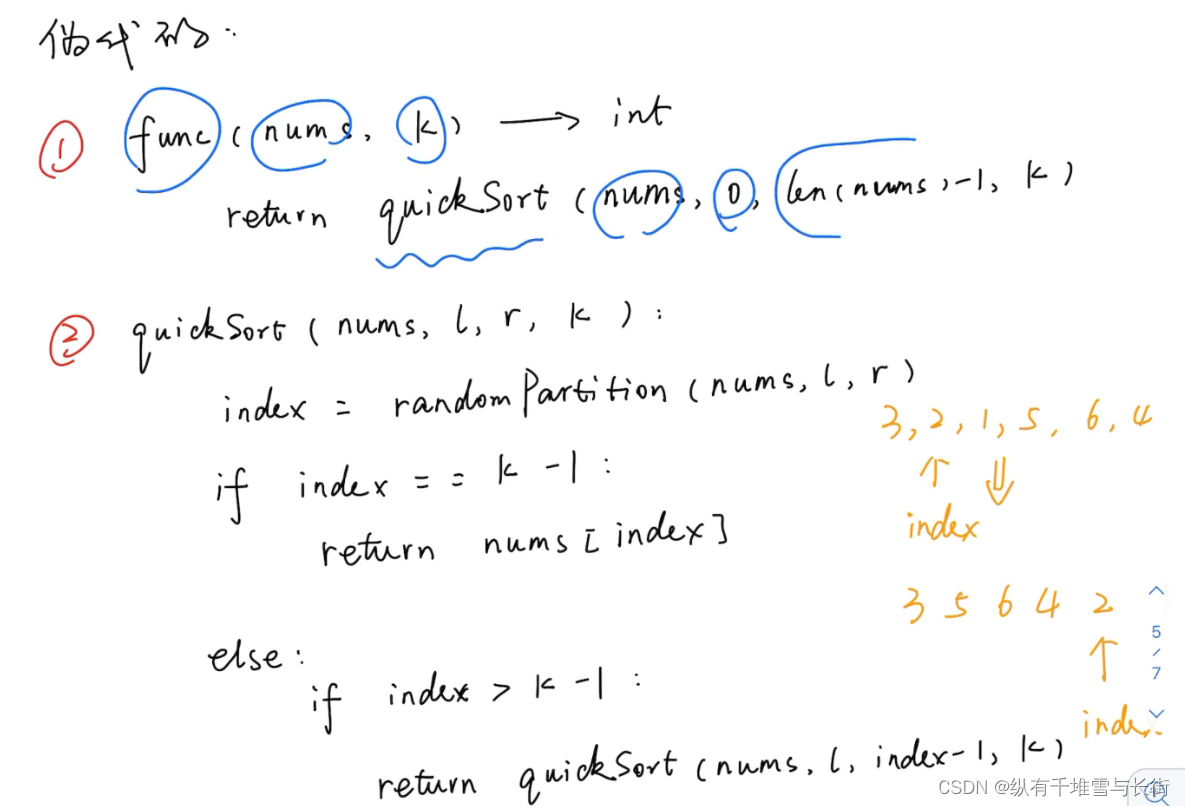 伪代码:
① func(nums, k) → int
return quickSort(nums, 0, len(nums)-1, k)
② quickSort(nums, l, r, k):
index = randomPartition(nums, l, r)
3, 2, 1, 5, 6, 4
if index == k-1:
index
return nums[index]
3 5 6 4 2
5
/
7
else:
if index > k-1:
index
return quickSort(nums, l, index-1, k)
CSDN @纵有千堆雪与长街